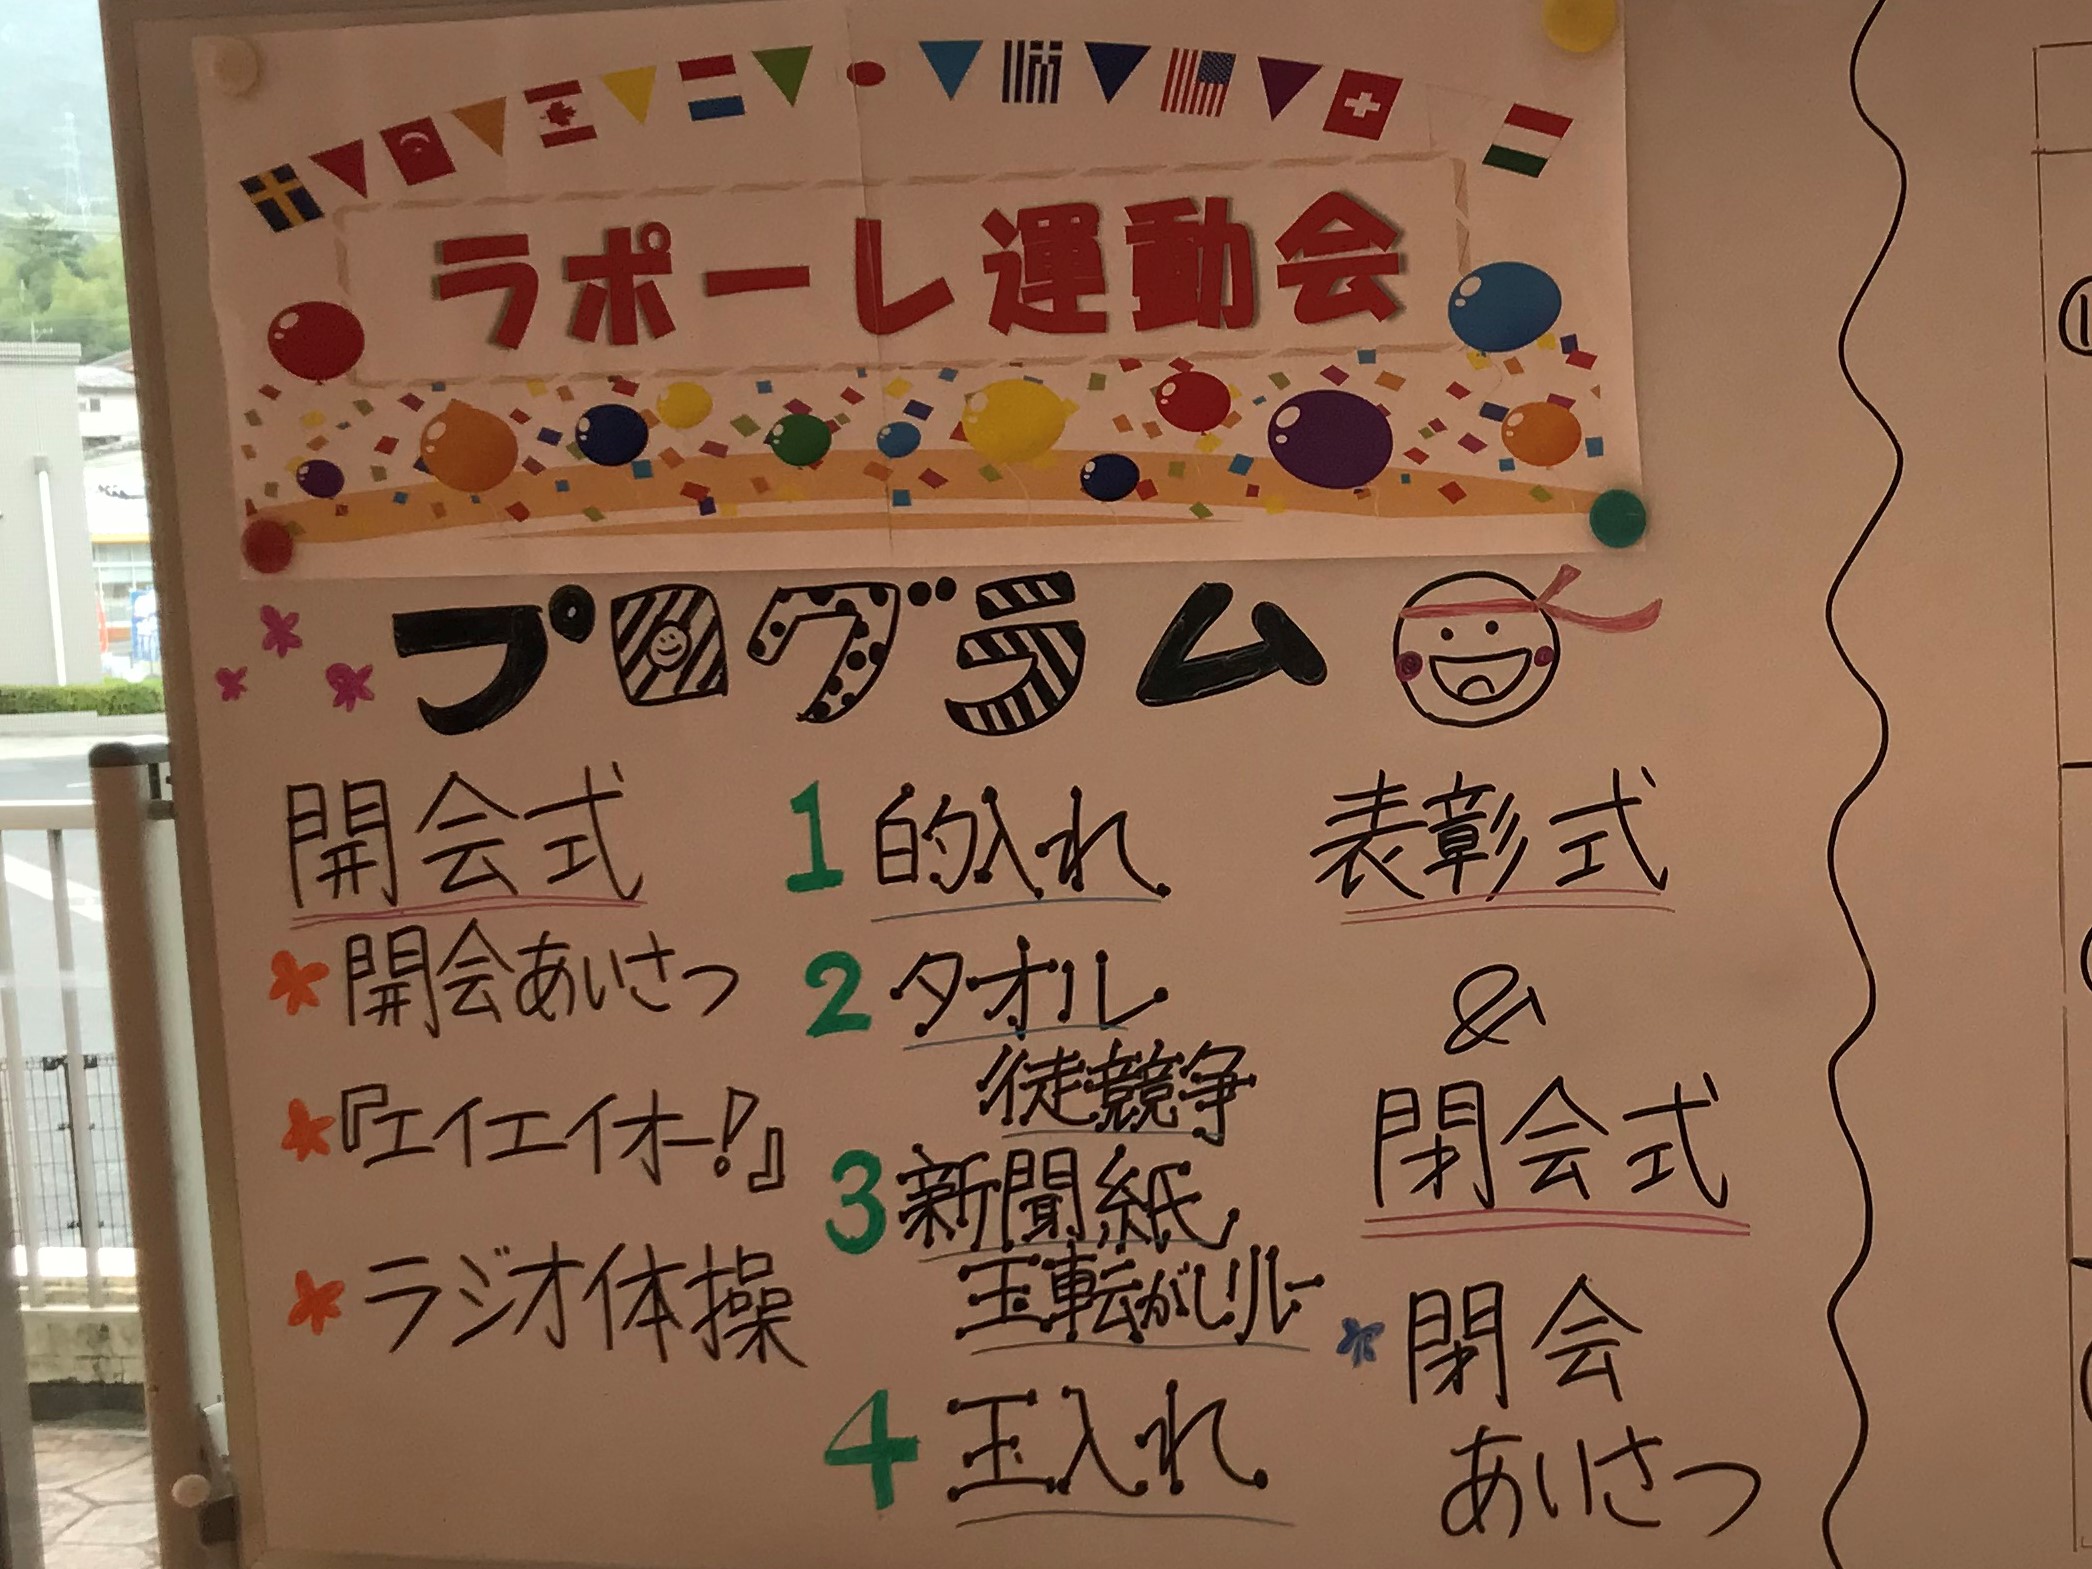 ラポーレ運動会
プログラム
開会式
開会あいさつ
『エイエイオー!』
ラジオ体操
1 的入れ
2 タオル
徒競争
3 新聞紙
玉転がしリレー
4 玉入れ
表彰式
&
閉会式
閉会
あいさつ
①